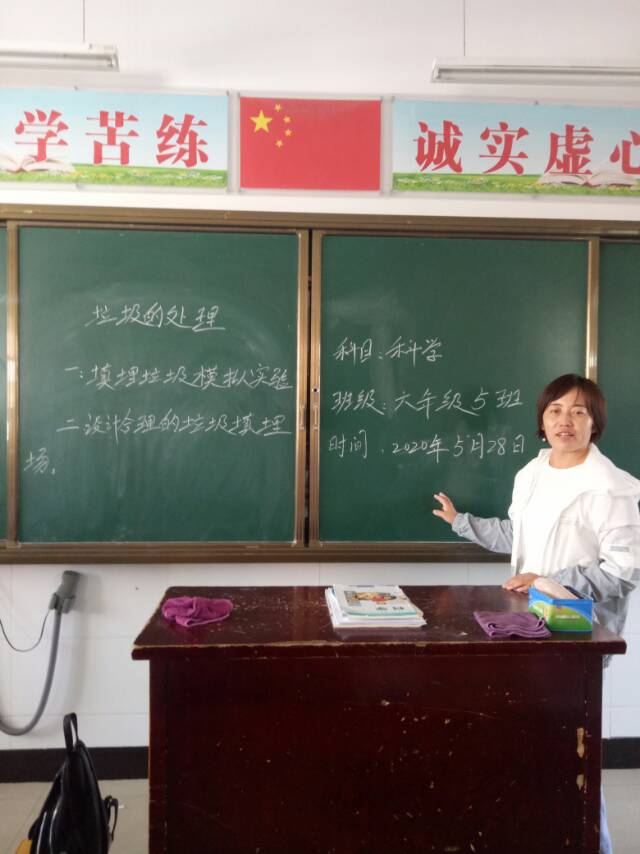 学苦练
诚实虚心
垃圾的处理
一:填埋垃圾模拟实验
二设计合理的垃圾填埋
场。
科目:科学
班级:六年级5班
时间:2020年5月28日